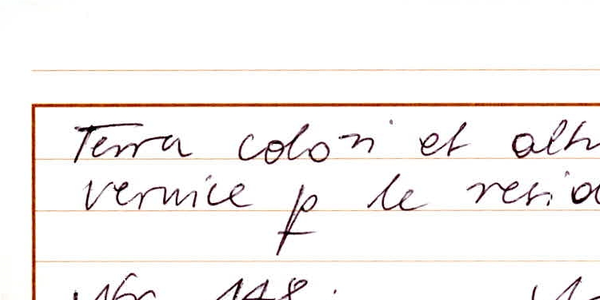 Terra colori et alt
vernice p le resid
148